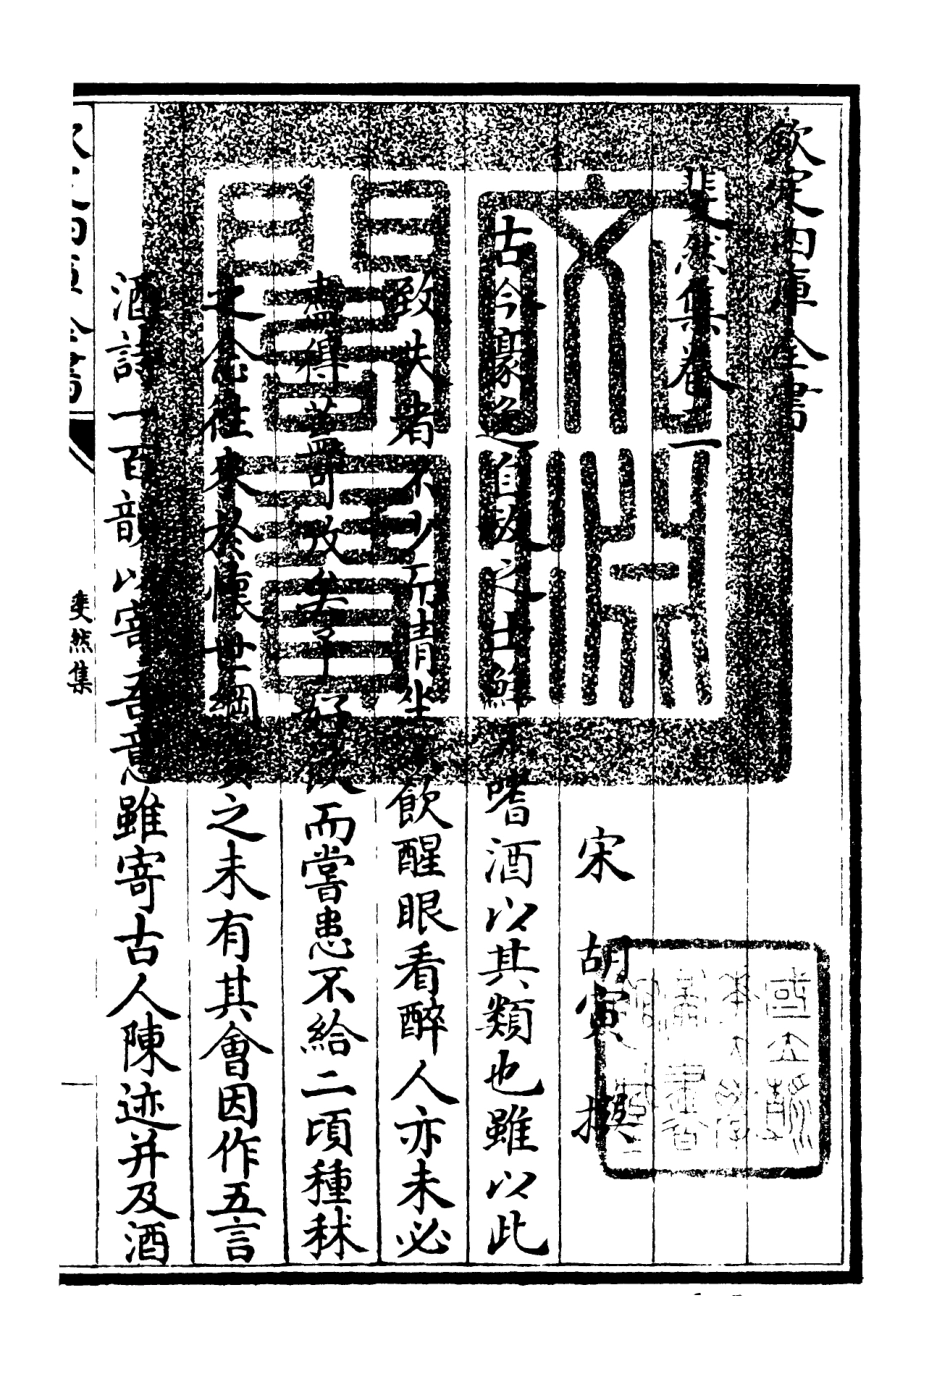 欽定四庫全書
斐然集卷一
宋 胡寅 撰
古今豪逸自放之士鮮不嗜酒以其類也雖以此
致失者不少而清坐不飲醒眼看醉人亦未必
盡得蓋嘗攷矣予好飲而嘗患不給二頃種秫
之念往來於懷世綱嬰之未有其會因作五言
酒詩一百韻以寄吾意雖寄古人陳迹并及酒
欽定四庫全書
斐然集
文淵閣寶